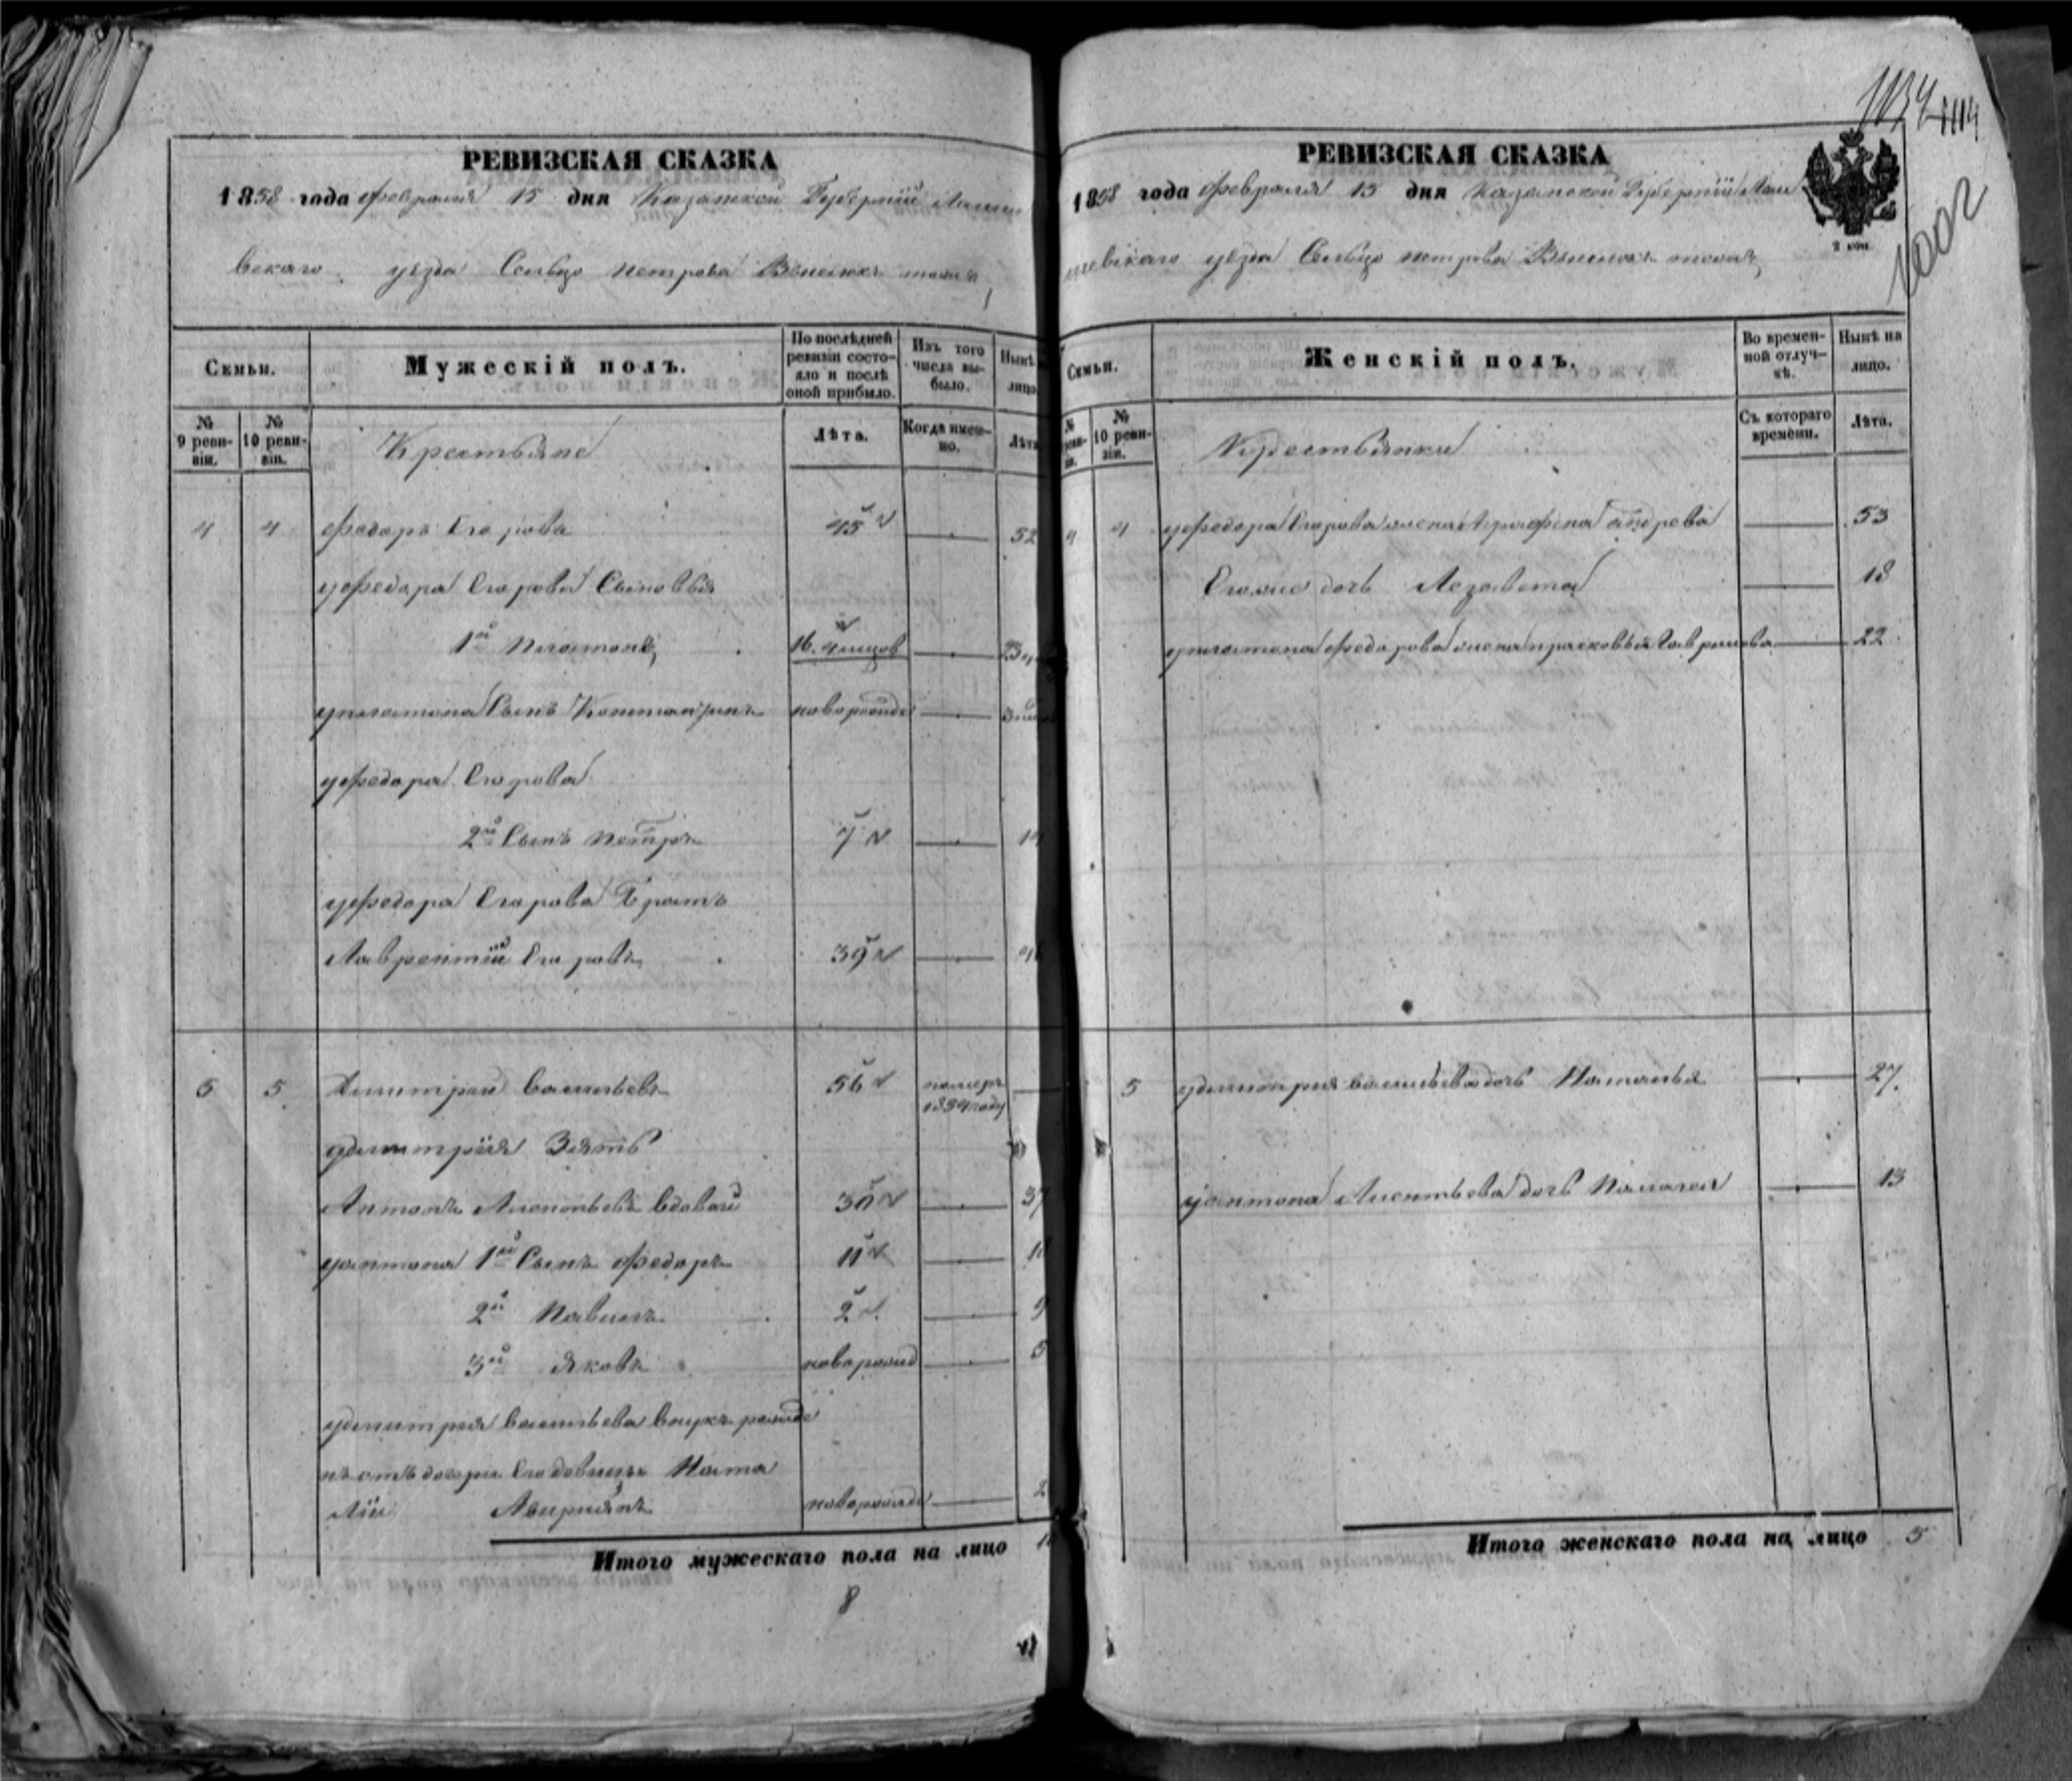 РЕВИЗСКАЯ СКАЗКА
1858 года февраля 15 дня Казанской Губернии Лаише
вскаго уезда Сельцо Петрова
Семьи.
Мужескій полъ.
По послѣдней ревизіи состояло и послѣ оной прибыло.
Изъ того числа выбыло.
Нынѣ
лицо
№ 9 ревизіи.
№ 10 ревизіи.
Крестьяне
Лѣта.
Когда именно.
Лѣта
4 4 Федоръ Егоровъ 45 52
у Федора Егорова Сыновья
1й Платонъ 16. 23
у Платона Сынъ новорожде 3
у Федора Егорова
2й Сынъ Петръ 7 14
у Федора Егорова Братъ
Лаврентій Егоровъ 39 46
5 5 Дмитрей Васильевъ 56 померъ 1854 году
у Дмитрія Зять
Антонъ Леонтьевъ вдовой 30 37
у Антона 1й Сынъ Федоръ 11 18
2й Павелъ 2 9
3й Яковъ новорожд 5
у Дмитрия Васильева внукъ рожде
нъ отъ дочери Ната
лии новорожде 2
Итого мужескаго пола на лицо
8
РЕВИЗСКАЯ СКАЗКА
1858 года февраля 15 дня Казанской Губернии Лаи
шевскаго уезда Сельцо Петрова
2 коп.
1114
1002
Семьи.
Женскій полъ.
Во временной отлучкѣ.
Нынѣ на лицо.
№ 10 ревизіи.
Крестьянки
Съ котораго времени.
Лѣта.
4 4 у Федора Егорова жена Аграфена Андрева 53
Егоже дочь Лезавета 18
у Платона Федорова жена Прасковья Гаврилова 22
5 у Дмитрия Васильева дочь Наталья 27.
у Антона Леонтьева дочь Палагея 13
Итого женскаго пола на лицо 5